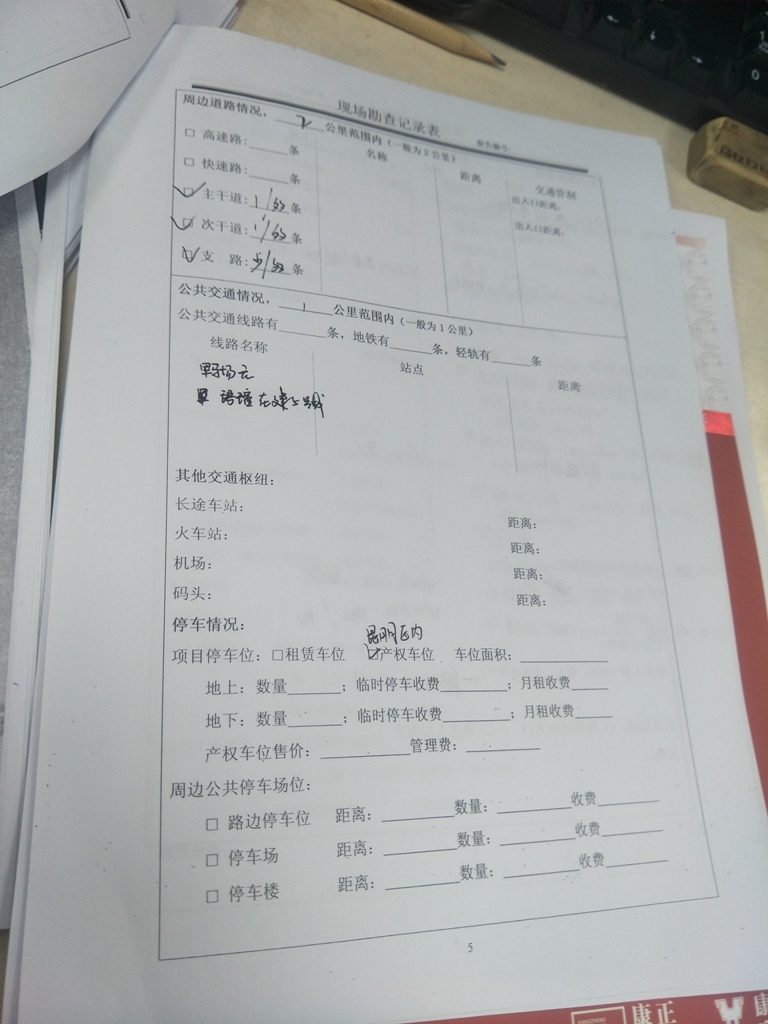 现场勘查记录表
报告编号:
周边道路情况, 2 公里范围内（一般为2公里）
名称 距离 交通管制
□ 高速路:______条 出入口距离:
□ 快速路:______条 出入口距离:
□ 主干道: 条
□ 次干道: 条
□ 支 路: 条
公共交通情况, 1 公里范围内（一般为1公里）
公共交通线路有______条，地铁有______条，轻轨有______条
线路名称 站点 距离
其他交通枢纽:
长途车站: 距离:
火车站: 距离:
机场: 距离:
码头: 距离:
停车情况:
项目停车位: □租赁车位 □产权车位 车位面积:__________
地上: 数量______; 临时停车收费______; 月租收费______
地下: 数量______; 临时停车收费______; 月租收费______
产权车位售价:__________管理费:__________
周边公共停车场位:
□ 路边停车位 距离:________数量:________收费________
□ 停车场 距离:________数量:________收费________
□ 停车楼 距离:________数量:________收费________
5
康正
康